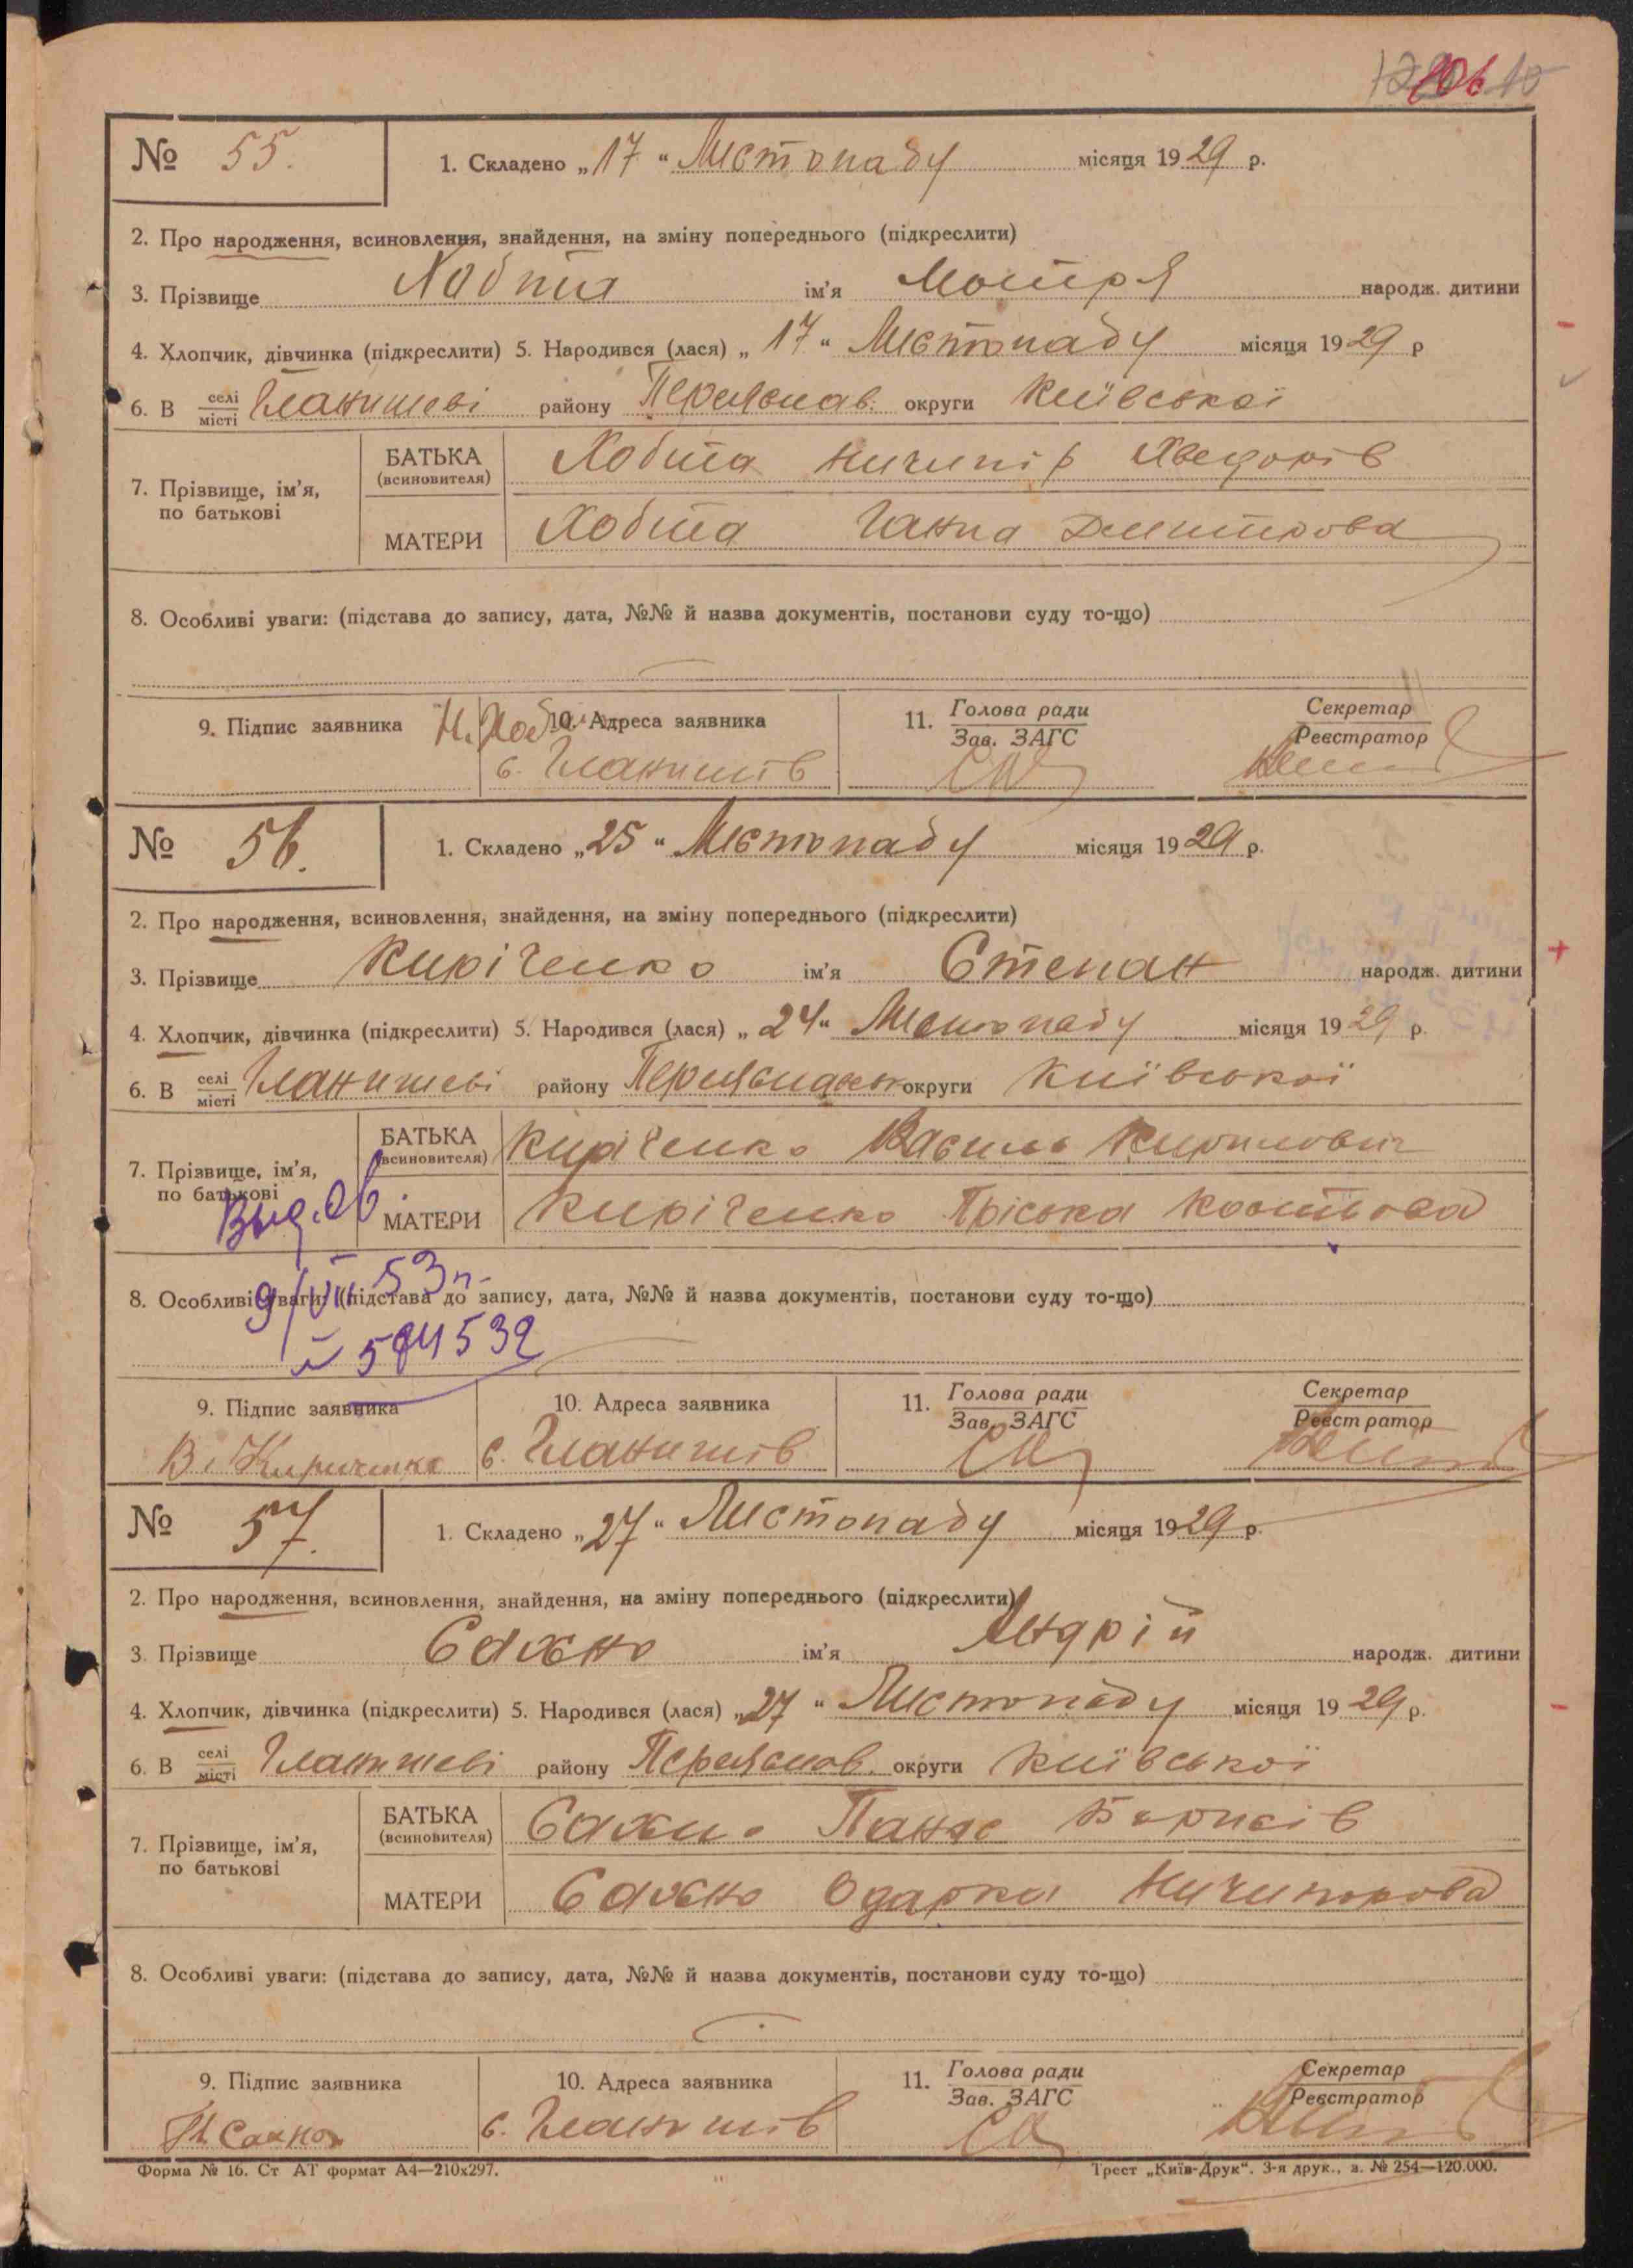 206
№ 55. 1. Складено „17“ Листопаду місяця 1929 р.
2. Про народження, всиновлення, знайдення, на зміну попереднього (підкреслити)
3. Прізвище Хобта ім'я Мотря народж. дитини
4. Хлопчик, дівчинка (підкреслити) 5. Народився (лася) „17“ Листопаду місяця 1929 р
6. В селі місті Гланишеві району Переяслав. округи Київської
7. Прізвище, ім'я, по батькові
БАТЬКА (всиновителя) Хобта Ничипір Хведорів
МАТЕРИ Хобта Ганна Дмитрова
8. Особливі уваги: (підстава до запису, дата, №№ й назва документів, постанови суду то-що)
9. Підпис заявника Н. Хоб 10. Адреса заявника 11. Голова ради Зав. ЗАГС Секретар Реєстратор
с. Гланишів
№ 56. 1. Складено „25“ Листопаду місяця 1929 р.
2. Про народження, всиновлення, знайдення, на зміну попереднього (підкреслити)
3. Прізвище Киріченко ім'я Степан народж. дитини
4. Хлопчик, дівчинка (підкреслити) 5. Народився (лася) „24“ Листопаду місяця 1929 р.
6. В селі місті Гланишеві району Переяславськ округи Київської
7. Прізвище, ім'я, по батькові
БАТЬКА (всиновителя) Киріченко Василь Кирилович
Выд. св.
МАТЕРИ Киріченко Пріська Костьова
9/VII 53 г.
8. Особливі уваги: (підстава до запису, дата, №№ й назва документів, постанови суду то-що)
9. Підпис заявника 10. Адреса заявника 11. Голова ради Зав. ЗАГС Секретар Реєстратор
В. Кириченко с. Гланишів
№ 57. 1. Складено „27“ Листопаду місяця 1929 р.
2. Про народження, всиновлення, знайдення, на зміну попереднього (підкреслити)
3. Прізвище Сахно ім'я Андрій народж. дитини
4. Хлопчик, дівчинка (підкреслити) 5. Народився (лася) „27“ Листопаду місяця 1929 р.
6. В селі місті Гланишеві району Переяслав. округи Київської
7. Прізвище, ім'я, по батькові
БАТЬКА (всиновителя) Сахно Панас Борисів
МАТЕРИ Сахно Одарка Ничипорова
8. Особливі уваги: (підстава до запису, дата, №№ й назва документів, постанови суду то-що)
9. Підпис заявника 10. Адреса заявника 11. Голова ради Зав. ЗАГС Секретар Реєстратор
П. Сахно с. Гланишів
Форма № 16. Ст АТ формат А4—210х297. Трест „Київ-Друк“. 3-я друк., з. № 254—120.000.